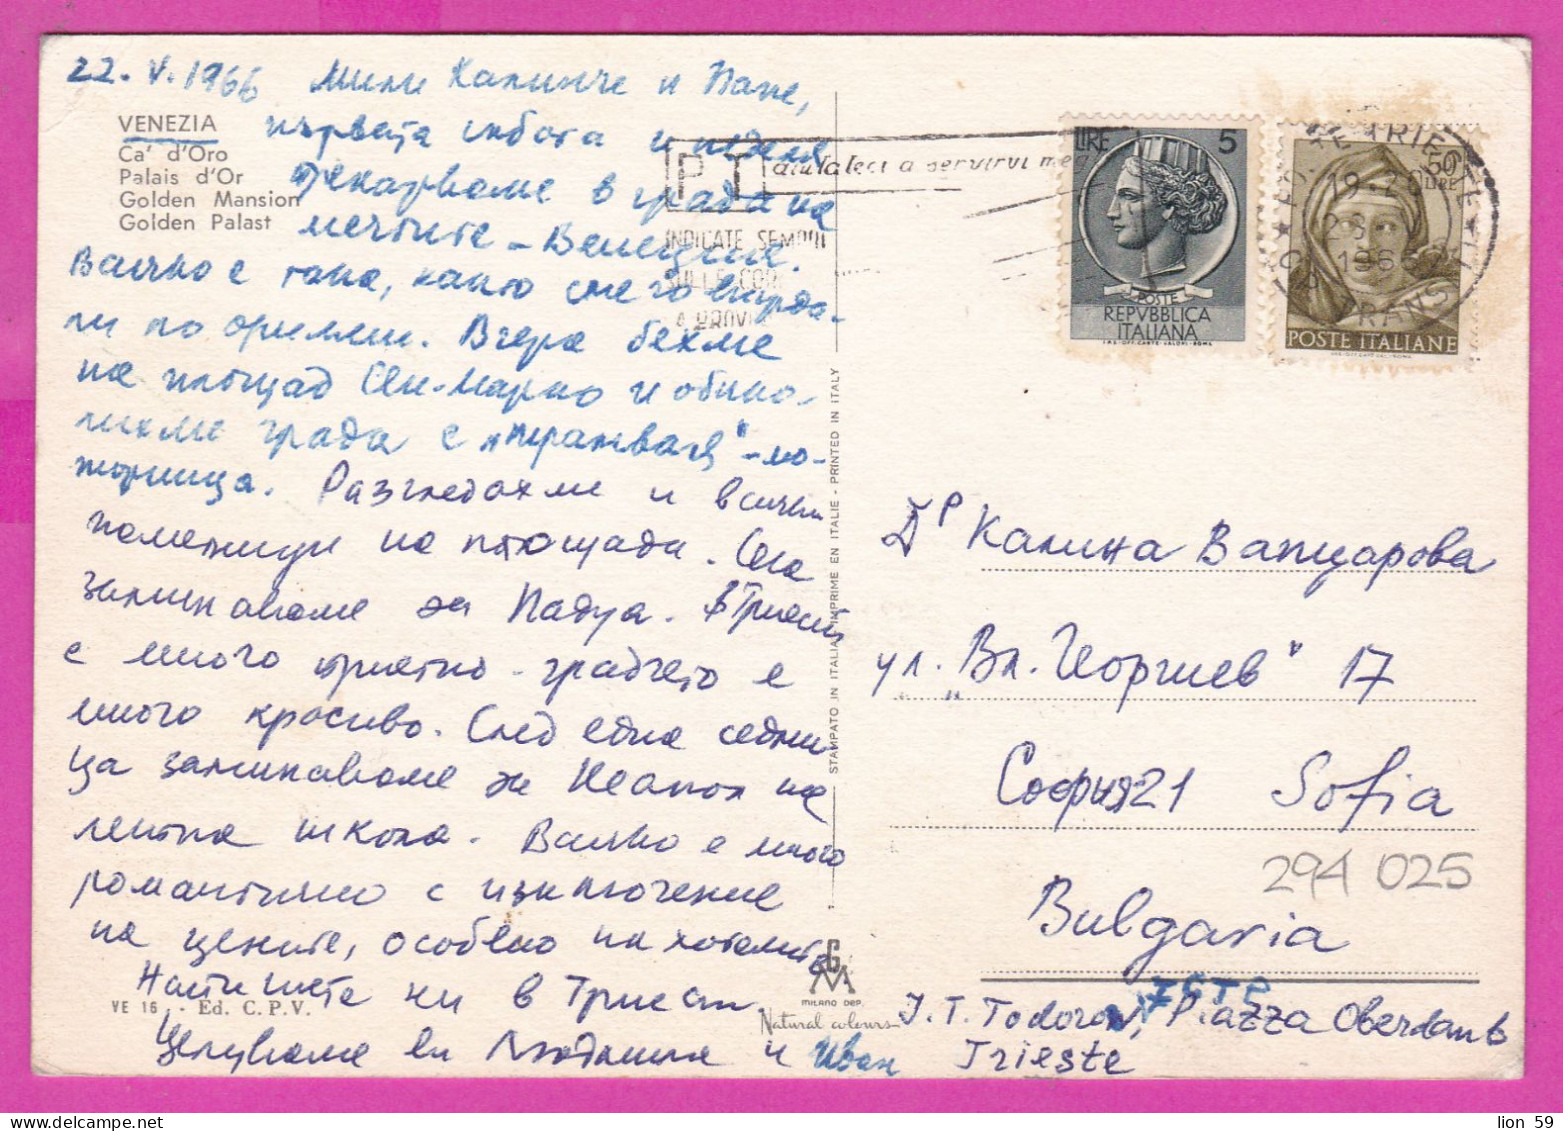 22. V. 1966 Мили Калинче и Папе,
VENEZIA
първата събота и неделя
Ca' d'Oro
Palais d'Or
Golden Mansion
Golden Palast
прекарваме в града на
мечтите – Венеция.
Всичко е така, както сме го виждали
по филми. Вчера бехме
на площад Сен-Марко и обико-
лихме града с „трамвая" – мо-
торница. Разгледахме и всички
паметници на площада. Сега
заминаваме за Падуа. В Триест
е много приятно – градчето е
много красиво. След една седми-
ца заминаваме за Неапол на
лятна школа. Всичко е много
романтично с изключение
на цените, особено на хотелите
Напишете ни в Триест.
Целуваме ви Людмила и Иван
VE 16 - Ed. C.P.V.
STAMPATO IN ITALIA - IMPRIME EN ITALIE - PRINTED IN ITALY
GM
MILANO DEP.
Natural colours
PT
INDICATE SEMPRE
LIRE 5
POSTE
REPVBBLICA
ITALIANA
50
LIRE
POSTE ITALIANE
TRIESTE
19-20
1966
Др Калина Вапцарова
ул. „Вл. Георгиев" 17
София 21 Sofia
294 025
Bulgaria
I. T. Todorov, ICTP, Piazza Oberdan 6
Trieste
lion 59